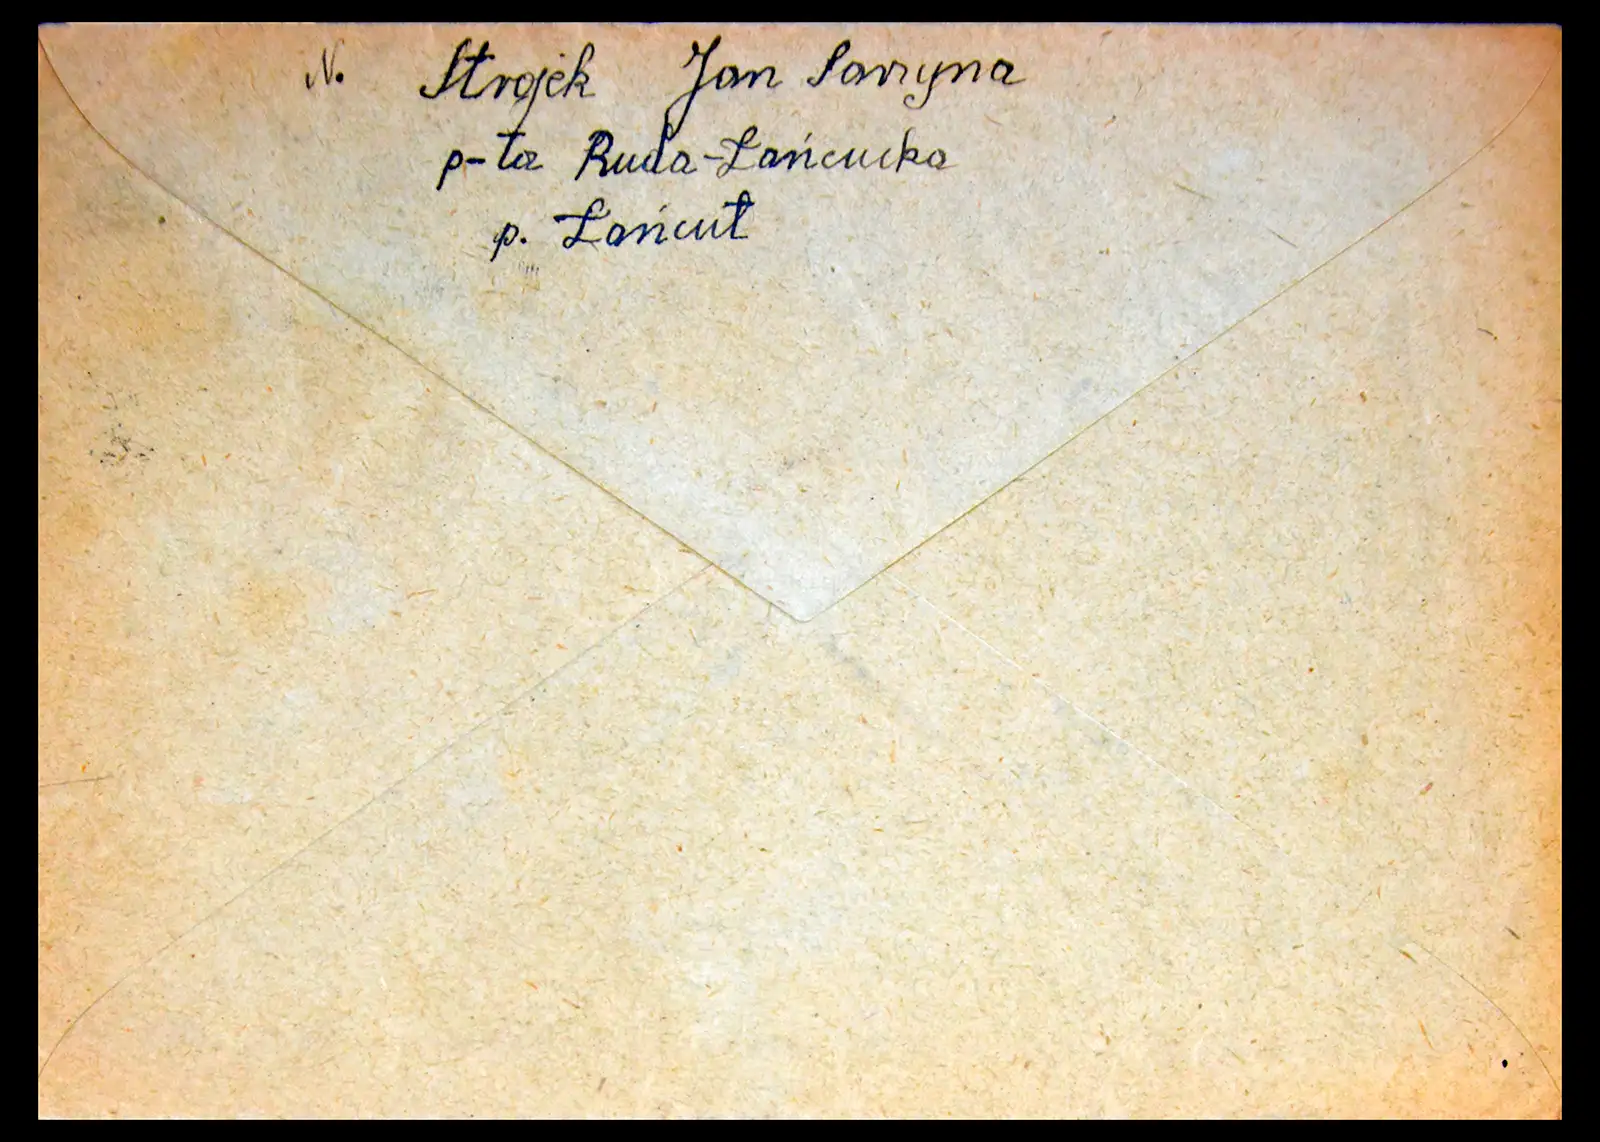 N. Strojek Jan Sarzyna
p-ta Ruda-Łańcucka
p. Łańcut